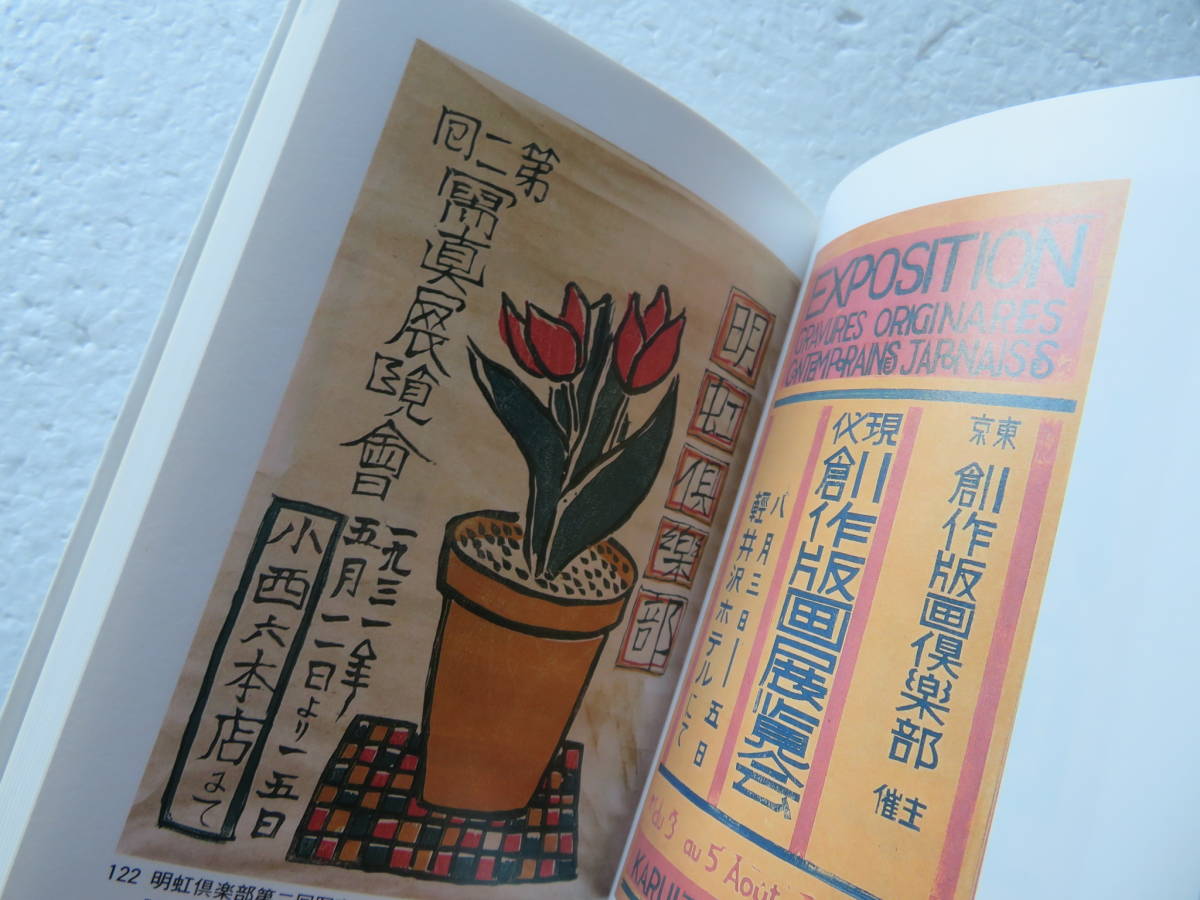 第二回
寫真展覧會
明虹倶樂部
一九三一年
五月一二日より一五日
小西六本店にて
122 明虹倶楽部第二回
EXPOSITION
GRAVURES ORIGINARES
CONTEMPORAINS JAPONAISES
東京
創作版画倶楽部
主催
現代
創作版画展覧会
八月三日—五日
軽井沢ホテルにて
du 3 au 5 Août
KARUIZ